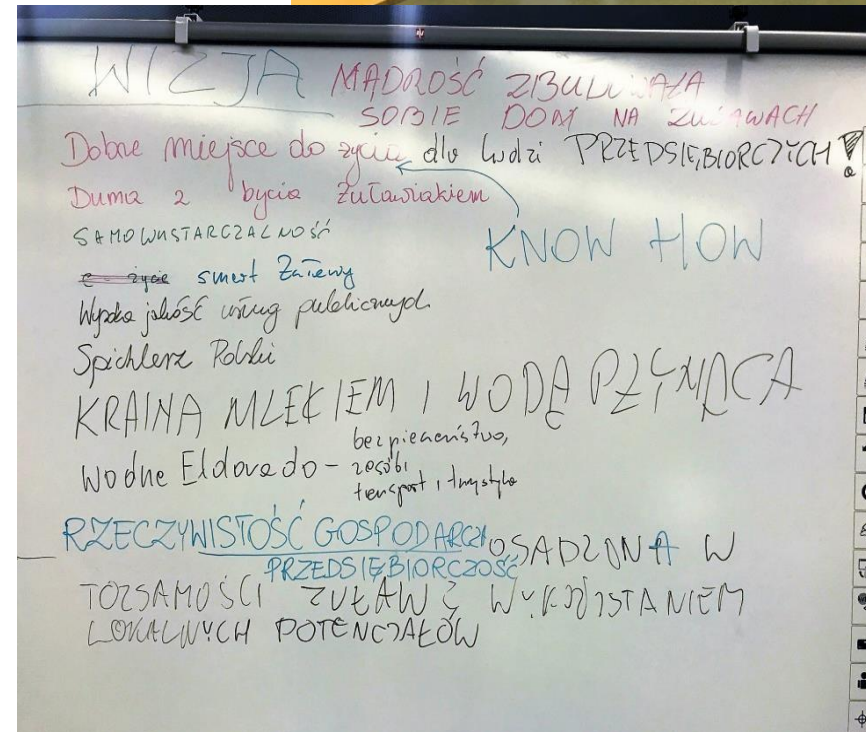 WIZJA MĄDROŚĆ ZBUDOWAŁA
SOBIE DOM NA ŻUŁAWACH
Dobre miejsce do życia dla ludzi PRZEDSIĘBIORCZYCH!
Duma z bycia Żuławiakiem
KNOW HOW
SAMOWYSTARCZALNOŚĆ
e - życie smart Żuławy
Wysoka jakość usług publicznych
Spichlerz Polski
KRAINA MLEKIEM I WODĄ PŁYNĄCA
Wodne Eldorado - bezpieczeństwo,
zasobi
transport i turystyka
RZECZYWISTOŚĆ GOSPODARCZA OSADZONA W
PRZEDSIĘBIORCZOŚĆ
TOŻSAMOŚCI ŻUŁAW Z WYKORZYSTANIEM
LOKALNYCH POTENCJAŁÓW